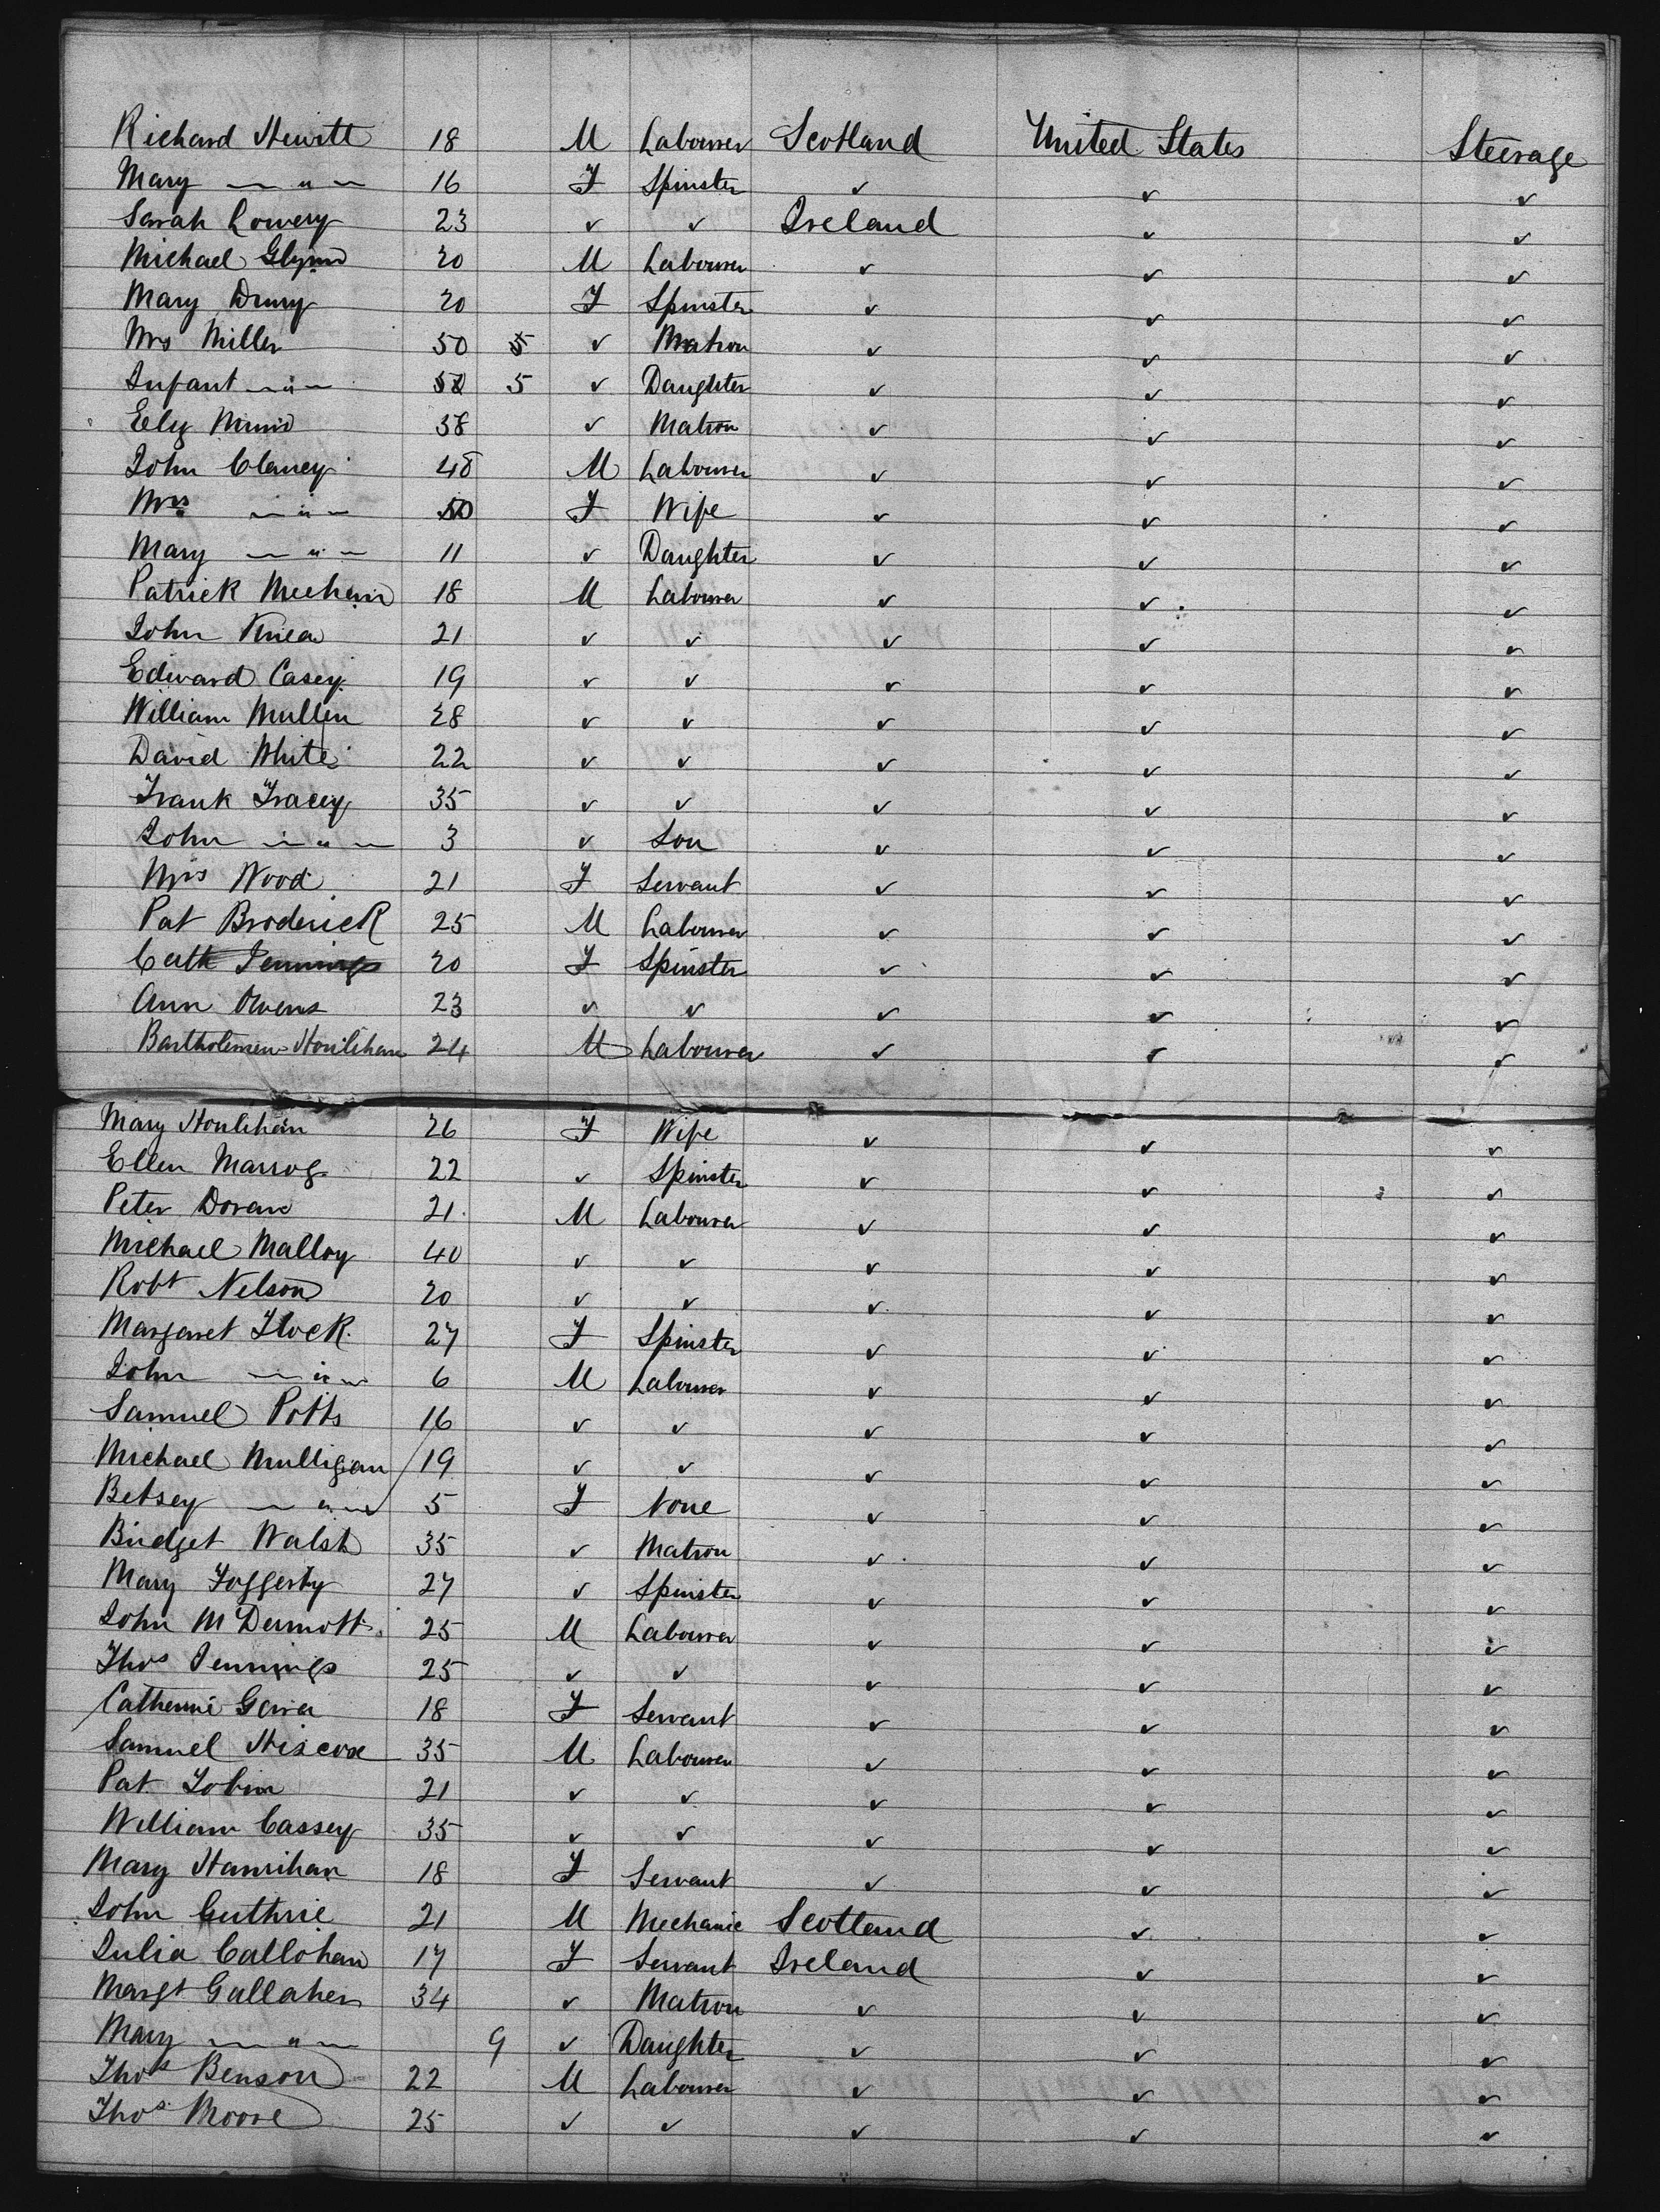 Richard Hewitt 18 M Labourer Scotland United States Steerage
Mary — " — 16 F Spinster ✓ ✓ ✓
Sarah Lowery 23 ✓ ✓ Ireland ✓ ✓
Michael Glynn 20 M Labourer ✓ ✓ ✓
Mary Drury 20 F Spinster ✓ ✓ ✓
Mrs Miller 50 ✓ Matron ✓ ✓ ✓
Infant — " — 5 ✓ Daughter ✓ ✓ ✓
38 ✓ Matron ✓ ✓ ✓
John Clancy 48 M Labourer ✓ ✓ ✓
Mrs — " — 50 F Wife ✓ ✓ ✓
Mary — " — 11 ✓ Daughter ✓ ✓ ✓
Patrick Meehan 18 M Labourer ✓ ✓ ✓
John 21 ✓ ✓ ✓ ✓ ✓
Edward Casey 19 ✓ ✓ ✓ ✓ ✓
William Mullen 28 ✓ ✓ ✓ ✓ ✓
David White 22 ✓ ✓ ✓ ✓ ✓
Frank Tracey 35 ✓ ✓ ✓ ✓ ✓
John — " — 3 ✓ Son ✓ ✓ ✓
Mrs Wood 21 F Servant ✓ ✓ ✓
Pat Broderick 25 M Labourer ✓ ✓ ✓
Cath Jennings 20 F Spinster ✓ ✓ ✓
Ann Owens 23 ✓ ✓ ✓ ✓ ✓
Bartholemew Houlihan 24 M Labourer ✓ ✓ ✓
Mary Houlihan 26 F Wife ✓ ✓ ✓
Ellen 22 ✓ Spinster ✓ ✓ ✓
Peter Doran 21 M Labourer ✓ ✓ ✓
Michael Malloy 40 ✓ ✓ ✓ ✓ ✓
Robt Nelson 20 ✓ ✓ ✓ ✓ ✓
Margaret Flock 27 F Spinster ✓ ✓ ✓
John — " — 6 M Labourer ✓ ✓ ✓
Samuel Potts 16 ✓ ✓ ✓ ✓ ✓
Michael Mulligan 19 ✓ ✓ ✓ ✓ ✓
Betsey — " — 5 F None ✓ ✓ ✓
Bridget Walsh 35 ✓ Matron ✓ ✓ ✓
Mary Foggerty 27 ✓ Spinster ✓ ✓ ✓
John McDermott 25 M Labourer ✓ ✓ ✓
Thos Jennings 25 ✓ ✓ ✓ ✓ ✓
Catherine 18 F Servant ✓ ✓ ✓
Samuel Hiscox 35 M Labourer ✓ ✓ ✓
Pat Tobin 21 ✓ ✓ ✓ ✓ ✓
William Cassey 35 ✓ ✓ ✓ ✓ ✓
Mary Hanrihan 18 F Servant ✓ ✓ ✓
John Guthrie 21 M Mechanic Scotland ✓ ✓
Julia Callohan 17 F Servant Ireland ✓ ✓
Margt Gallaher 34 ✓ Matron ✓ ✓ ✓
Mary — " — 9 ✓ Daughter ✓ ✓ ✓
Thos Benson 22 M Labourer ✓ ✓ ✓
Thos Moore 25 ✓ ✓ ✓ ✓ ✓